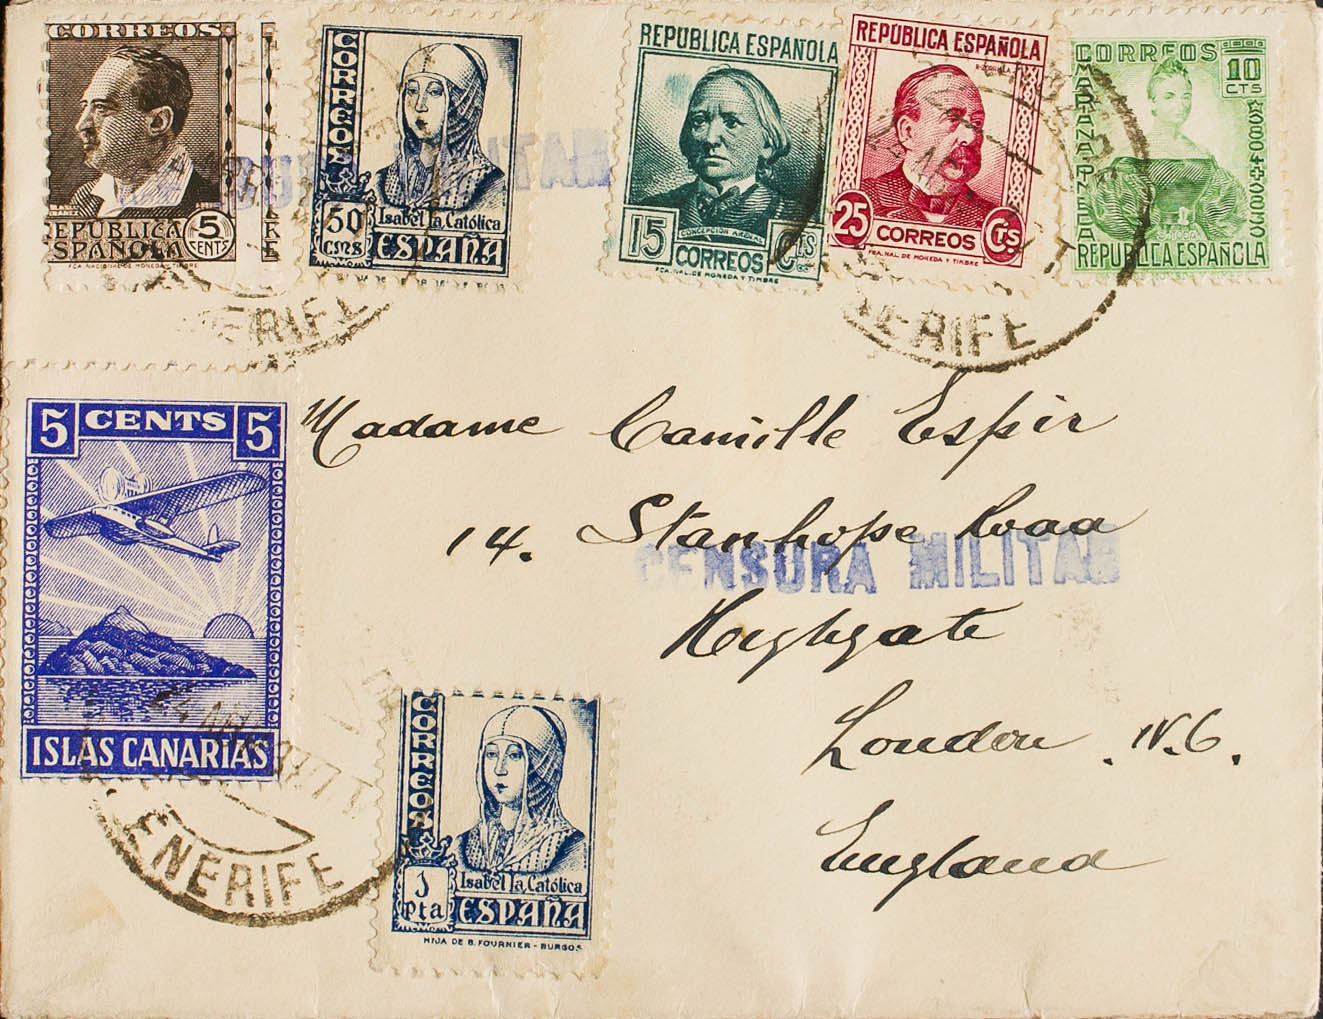 CORREOS
REPÚBLICA
ESPAÑOLA
5
CENTS
FCA. NACIONAL DE MONEDA Y TIMBRE
CORREOS
50
CMS
Isabel la Católica
ESPAÑA
REPÚBLICA ESPAÑOLA
15
CONCEPCIÓN ARENAL
CORREOS
Cts
FCA. NAL. DE MONEDA Y TIMBRE
REPÚBLICA ESPAÑOLA
25
CORREOS
Cts
FCA. NAL. DE MONEDA Y TIMBRE
CORREOS
10
CTS
MARIANA PINEDA
REPÚBLICA ESPAÑOLA
MILITAR
TENERIFE
NERIFE
5 CENTS 5
ISLAS CANARIAS
Madame Camille Espir
14. Stanhope Road
CENSURA MILITAR
Highgate
London. N.6.
England
ENERIFE
CORREOS
1
Pta
Isabel la Católica
ESPAÑA
HIJA DE B. FOURNIER - BURGOS